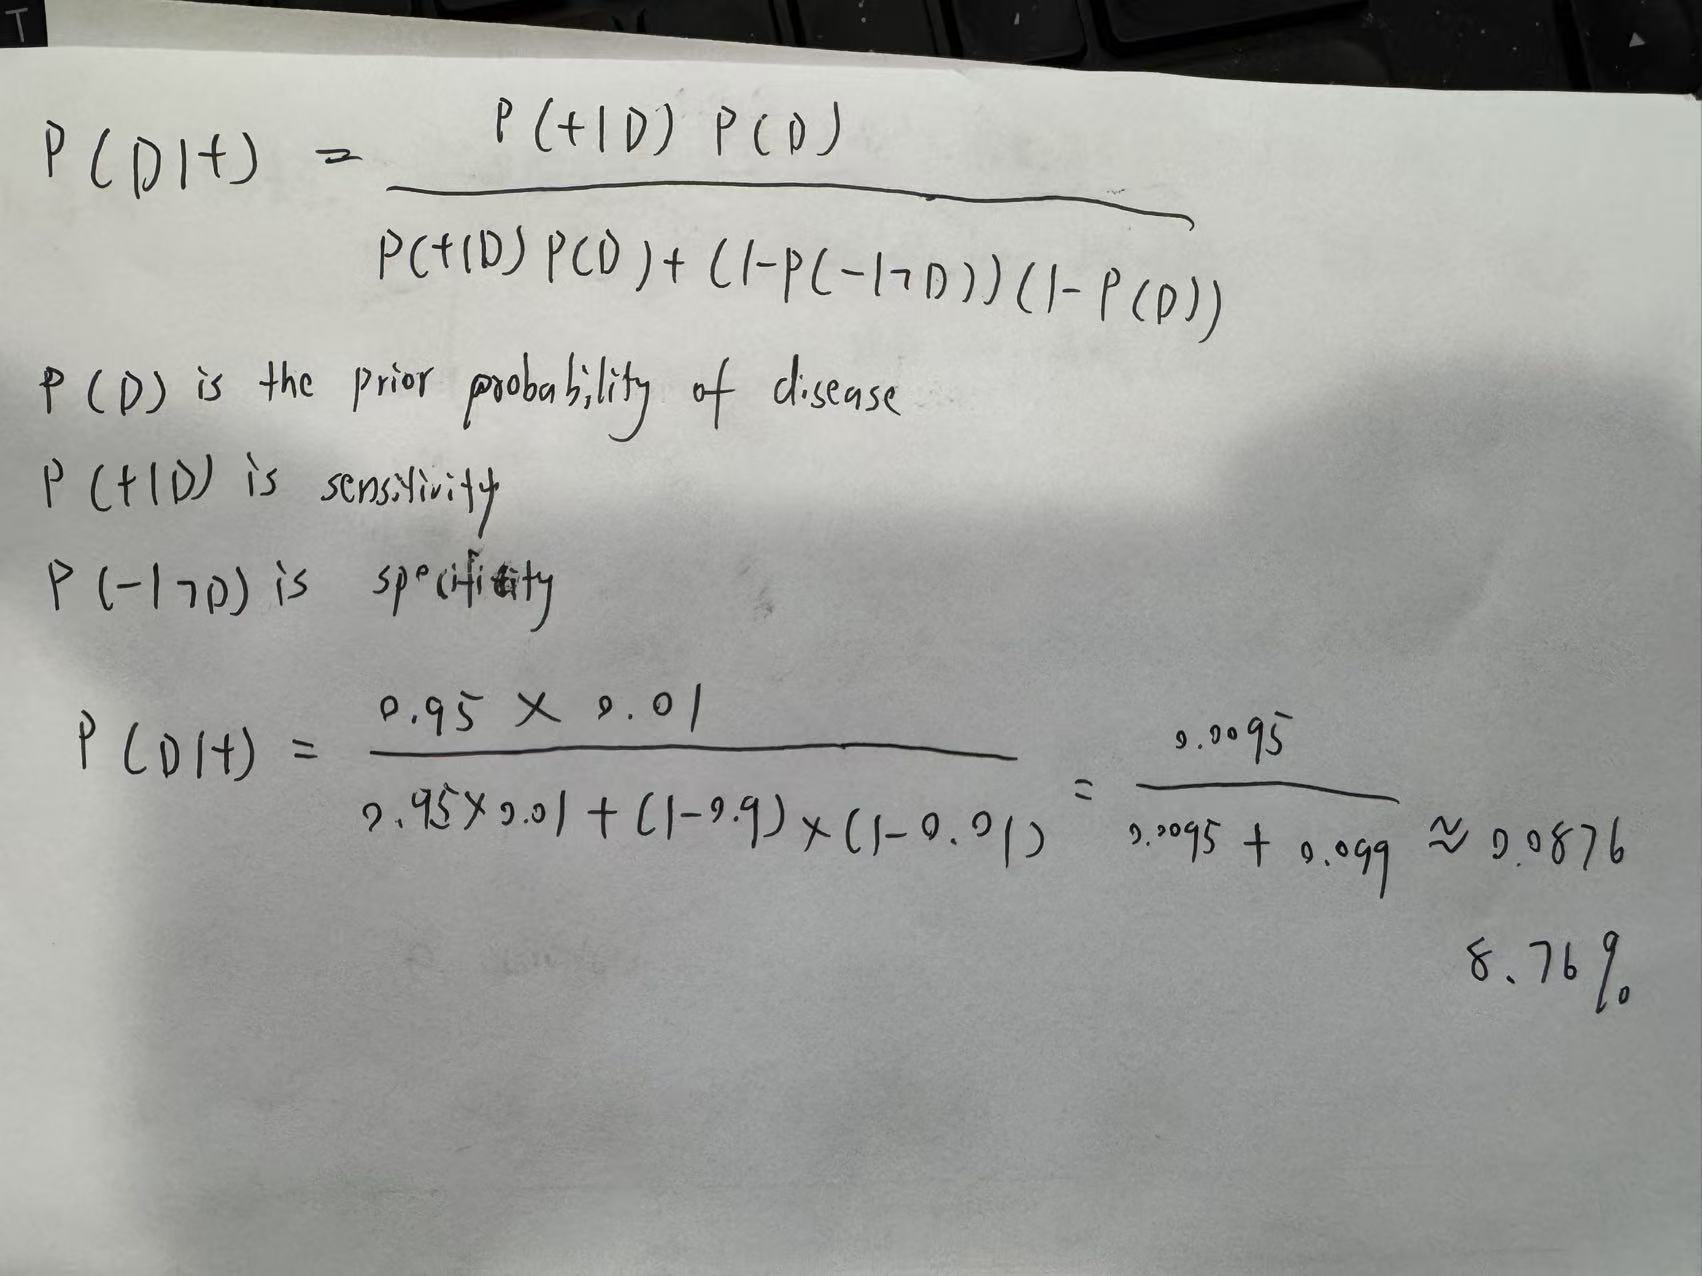 T
P(D|+) = P(+|D) P(D) / P(+|D) P(D) + (1-P(-|¬D))(1-P(D))
P(D) is the prior probability of disease
P(+|D) is sensitivity
P(-|¬D) is specificity
P(D|+) = 0.95 × 0.01 / 0.95×0.01 + (1-0.9)×(1-0.01) = 0.0095 / 0.0095 + 0.099 ≈ 0.0876
8.76%